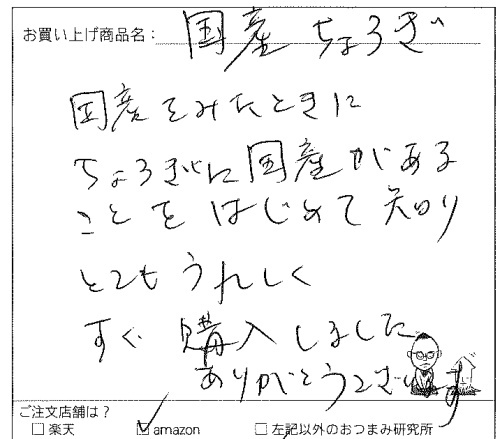 お買い上げ商品名: 国産 ちょろぎ
国産をみたときに
ちょろぎに国産がある
ことをはじめて知り
とてもうれしく
すぐ購入しました
ありがとうございます
ご注文店舗は?
□楽天 ☑amazon □左記以外のおつまみ研究所